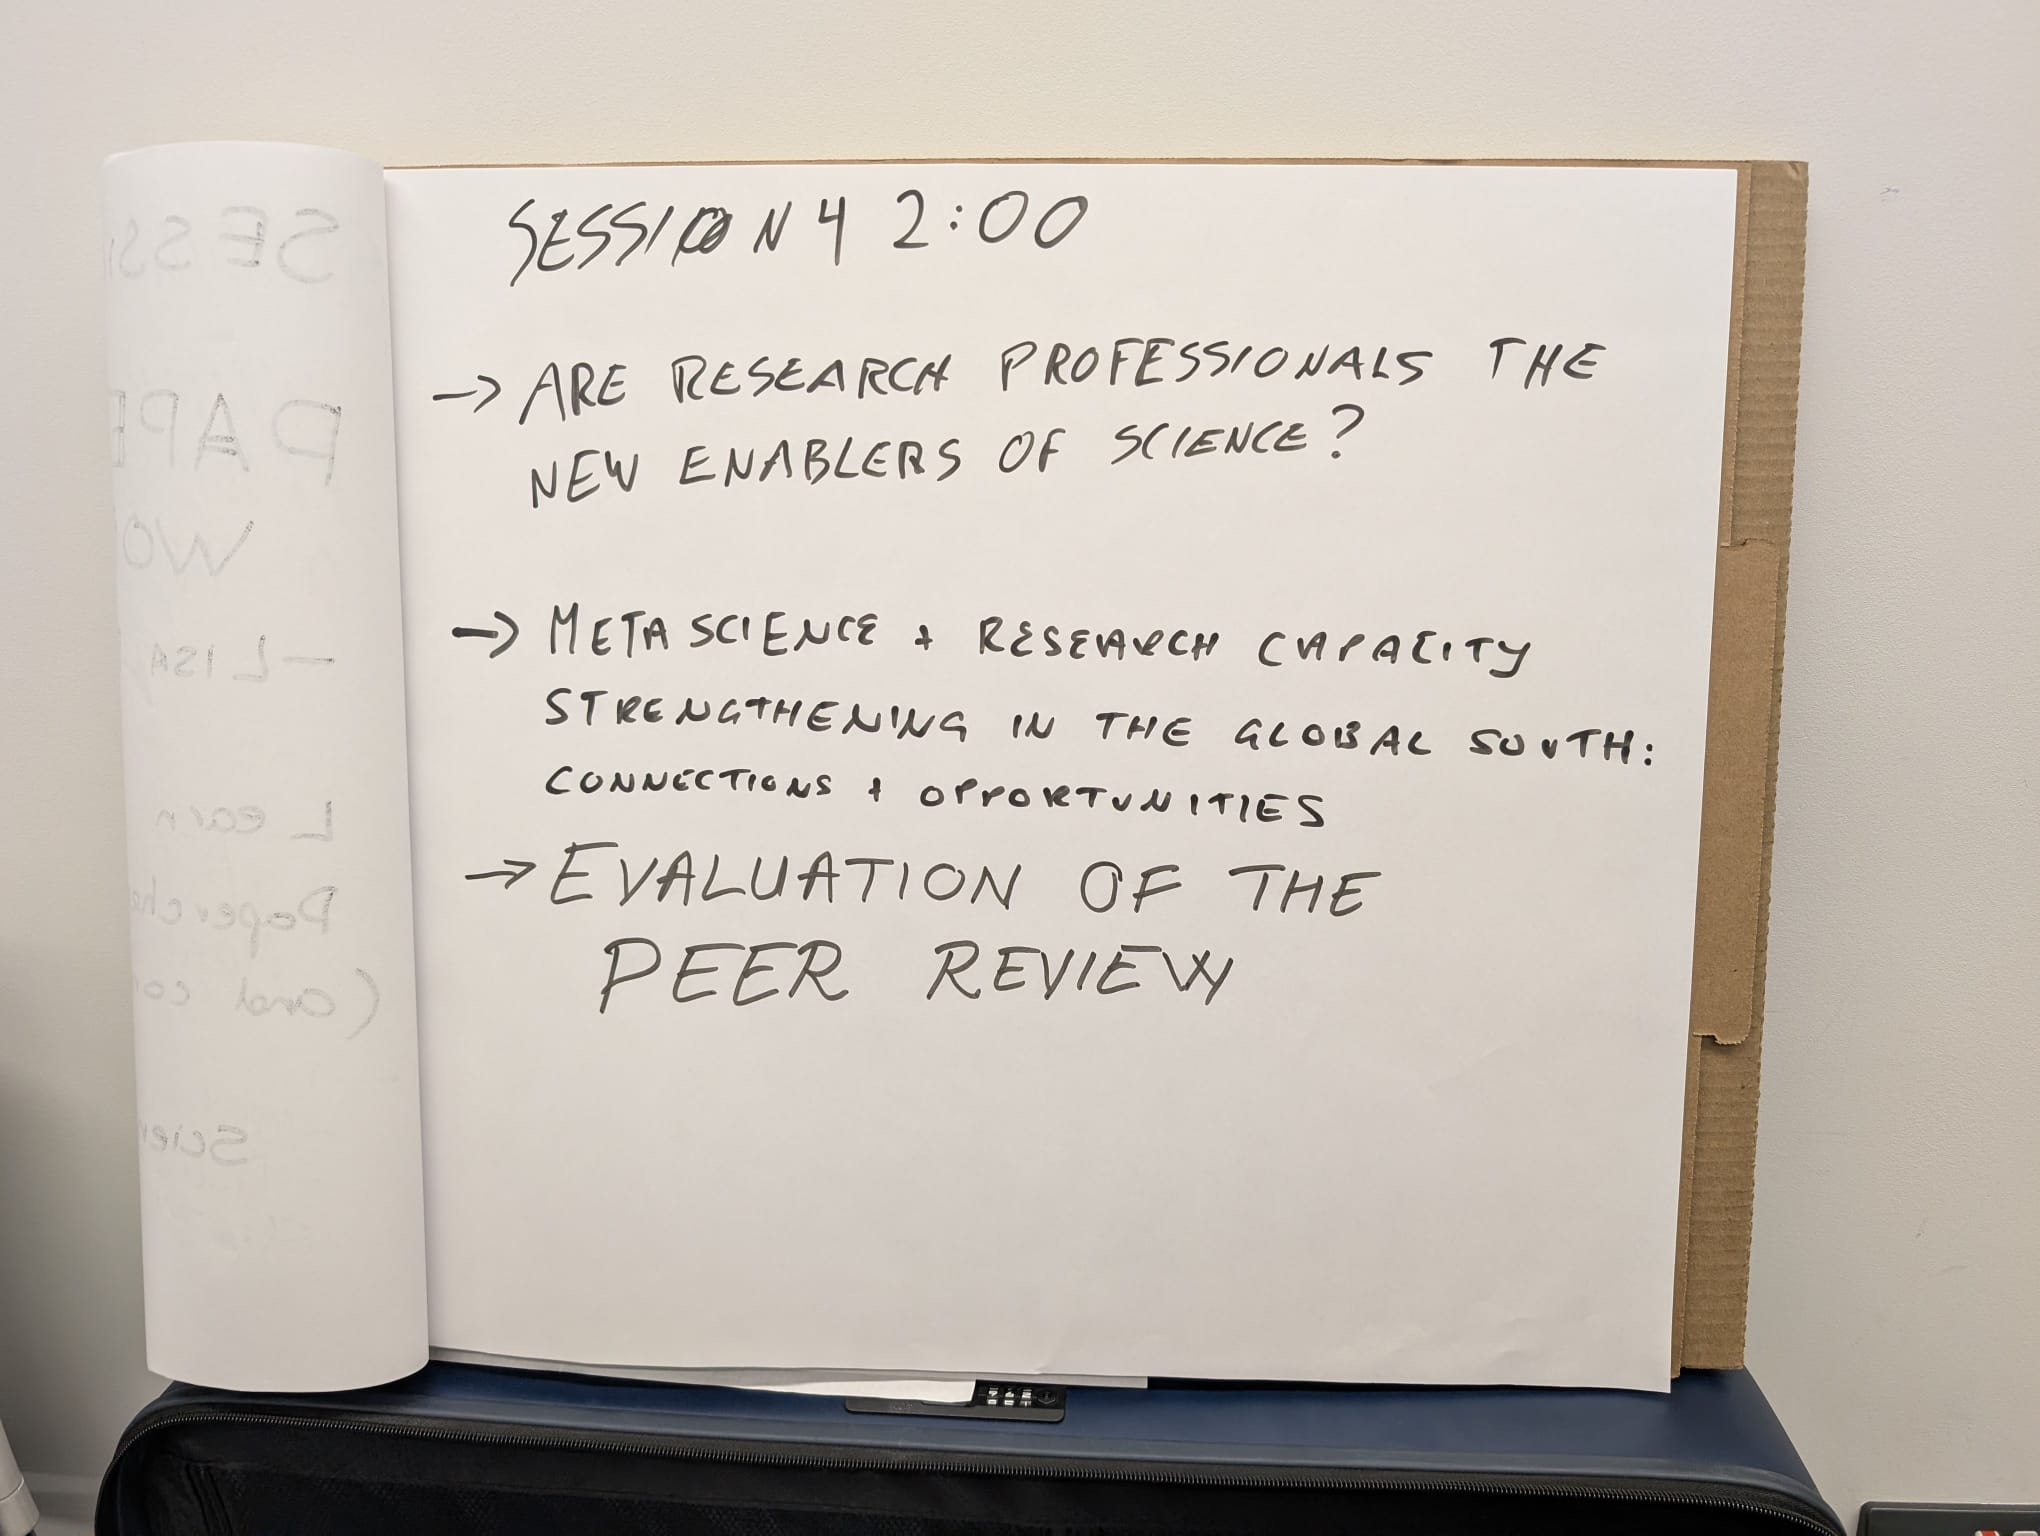 SESSION 4 2:00
→ ARE RESEARCH PROFESSIONALS THE
NEW ENABLERS OF SCIENCE?
→ METASCIENCE + RESEARCH CAPACITY
STRENGTHENING IN THE GLOBAL SOUTH:
CONNECTIONS + OPPORTUNITIES
→ EVALUATION OF THE
PEER REVIEW
SESS
PAPE
WO
- LISA
Learn
Paperche
(and co
Scien